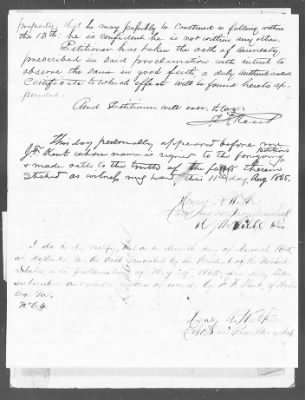 property that he may possibly be construed as falling within
the 13th he is confident he is not within any other.
Petitioner has taken the oath of Amnesty
prescribed in said proclamation with intent to
observe the same in good faith, a duly authenticated
Certificate to which effect will be found hereto ap-
pended.
And Petitioner will ever pray
This day personally appeared before me
J.F. Kent whose name is signed to the foregoing petition
& made oath to the truth of the facts therein
Stated as witness my hand, this day Aug 1865.
I do hereby certify that on the day of August 1865,
at Wytheville Va. the oath prescribed by the President of the United
States, in his proclamation of May 29th 1865, was duly taken
subscribed and made matter of record by J. F. Kent, of Wythe
Co. Va.
No 64